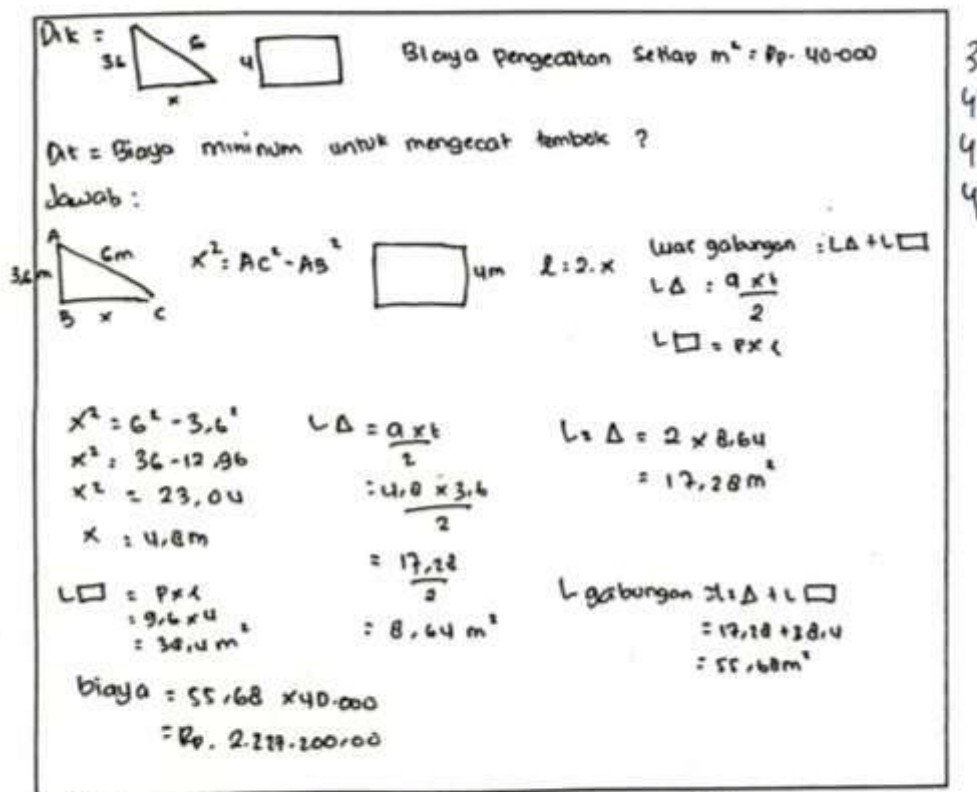 Dik =
36
6
x
4
Biaya pengecatan setiap m² = Rp. 40.000
Dit = Biaya mininum untuk mengecat tembok ?
Jawab :
A
3,6 m
6m
B x C
x² = AC² - AB²
4m
l = 2.x
luar gabungan = L△ + L▭
L△ = a x t
2
L▭ = p x l
x² = 6² - 3,6²
x² = 36 - 12,96
x² = 23,04
x = 4,8m
L△ = a x t
2
= 4,8 x 3,6
2
= 17,28
2
= 8,64 m²
L2 △ = 2 x 8,64
= 17,28 m²
L▭ = p x l
= 9,6 x 4
= 38,4 m²
L gabungan = L2△ + L▭
= 17,28 + 38,4
= 55,68m²
biaya = 55,68 x 40.000
= Rp. 2.227.200,00
3
4
4
4